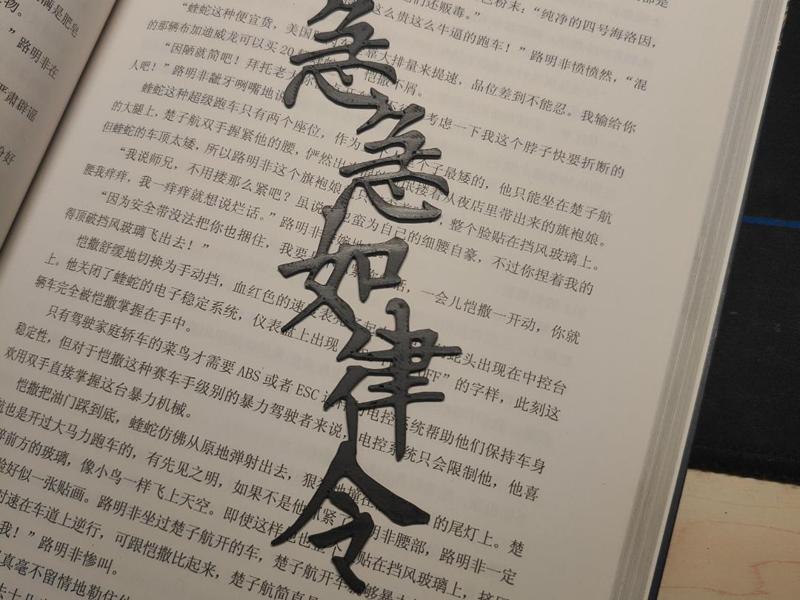 急急如律令
色粉末：“纯净的四号海洛因，
们还贩毒。”
这么贵这么牛逼的跑车！”路明非愤愤然，“混
“蝰蛇这种便宜货，美国
大排量来提速，品位差到不能忍。我输给你
的那辆布加迪威龙可以买20
恺撒不屑。
“因陋就简吧！拜托老大
考虑一下我这个脖子快要折断的
人吧！”路明非龇牙咧嘴地说
蝰蛇这种超级跑车只有两个座位，作为
个子最矮的，他只能坐在楚子航
的大腿上，楚子航双手握紧他的腰，俨然出
搂着从夜店里带出来的旗袍娘。
但蝰蛇的车顶太矮，所以路明非这个旗袍娘
整个脸贴在挡风玻璃上。
“我说师兄，不用搂那么紧吧？虽说
蛮为自己的细腰自豪，不过你捏着我的
腰我痒痒，我一痒痒就想说烂话。”路明非
“因为安全带没法把你也捆住，我要
一会儿恺撒一开动，你就
得顶破挡风玻璃飞出去！”
恺撒舒缓地切换为手动挡，血红色的速度表
蛇头出现在中控台
上。他关闭了蝰蛇的电子稳定系统，仪表盘上出现
OFF”的字样，此刻这
辆车完全被恺撒掌握在手中。
只有驾驶家庭轿车的菜鸟才需要ABS或者ESC
电控系统帮助他们保持车身
稳定性，但对于恺撒这种赛车手级别的暴力驾驶者来说，电控系统只会限制他，他喜
欢用双手直接掌握这台暴力机械。
恺撒把油门踩到底，蝰蛇仿佛从原地弹射出去，狠
的尾灯上。楚
也是开过大马力跑车的，有先见之明，如果不是他抓紧了
明非腰部，路明非一定
前方的玻璃，像小鸟一样飞上天空。即使这样
贴在挡风玻璃上，
好似一张贴画。路明非坐过楚子航开的车，楚子航开车
速在车道上逆行，可跟恺撒比起来，楚子航简直
我！”路明非惨叫。
真毫不留情地勒住